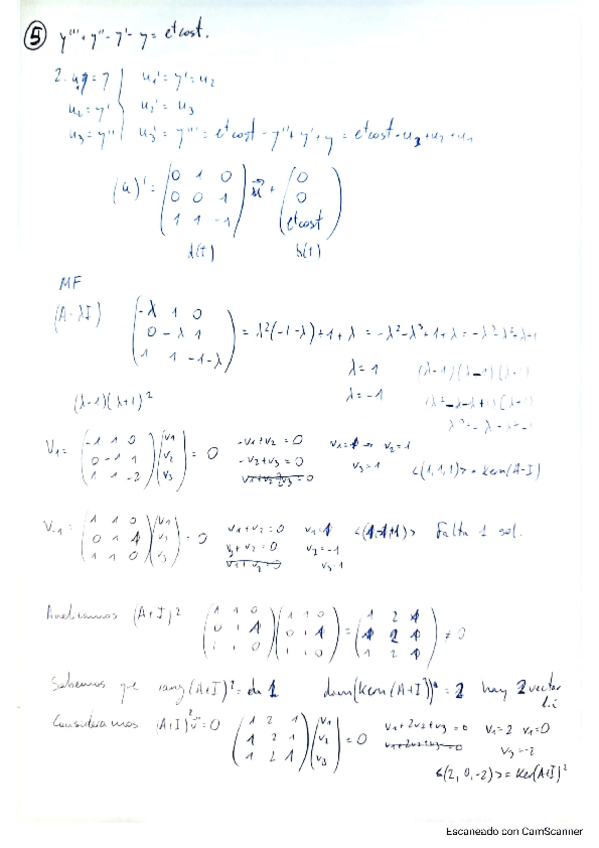 5 y''' + y'' - y' - y = e^t cos t.
2. u1 = y | u1' = y' = u2
u2 = y' | u2' = u3
u3 = y'' | u3' = y''' = e^t cos t - y'' + y' + y = e^t cos t - u3 + u2 + u1
(u)' = (0 1 0 / 0 0 1 / 1 1 -1) u + (0 / 0 / e^t cos t)
A(t) b(t)
MF
(A-λI) (-λ 1 0 / 0 -λ 1 / 1 1 -1-λ) = λ²(-1-λ)+1+λ = -λ²-λ³+1+λ =
λ = 1
λ = -1
(λ-1)(λ+1)²
V1 = (-1 1 0 / 0 -1 1 / 1 1 -2)(v1 / v2 / v3) = 0 -v1+v2 = 0 v2 = 1
-v2+v3 = 0 v3 = 1 <(1,1,1)> = Kern(A-I)
V-1 = (1 1 0 / 0 1 1 / 1 1 0)(v1 / v2 / v3) = 0 v1+v2 = 0 v1=1 <(1,-1,1)> Falta 1 sol.
v3+v2 = 0 v2 = -1
v1+v2 = 0 v3 = 1
Analizamos (A+I)² (1 1 0 / 0 1 1 / 1 1 0)(1 1 0 / 0 1 1 / 1 1 0) = (1 2 1 / 1 2 1 / 1 2 1) ≠ 0
Sabemos que rang(A+I)² = 1 (Kern(A+I))² = 2 hay 2 vector
l.i
Consideramos (A+I)² v = 0 (1 2 1 / 1 2 1 / 1 2 1)(v1 / v2 / v3) = 0 v1+2v2+v3 = 0 v1=2 v2=0
v1+2v2+v3=0 v3=-2
<(2,0,-2)> = Ker(A+I)²
Escaneado con CamScanner